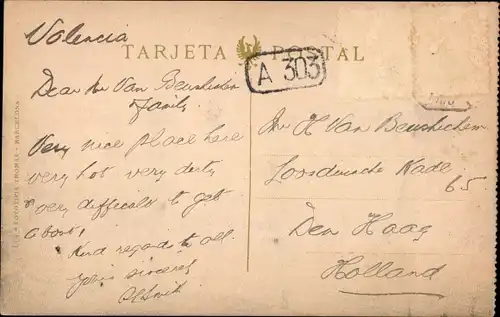 Valencia
TARJETA POSTAL
A 303
Dear Mr Van Beushekem
Family
Very nice place here
very hot very dirty
& very difficult to get
about,
Kind regards to all.
yours sincerely
Mr H Van Beushekem
Loosduinsche Kade
65.
Den Haag
Holland
FOTOTIPIA THOMAS - BARCELONA